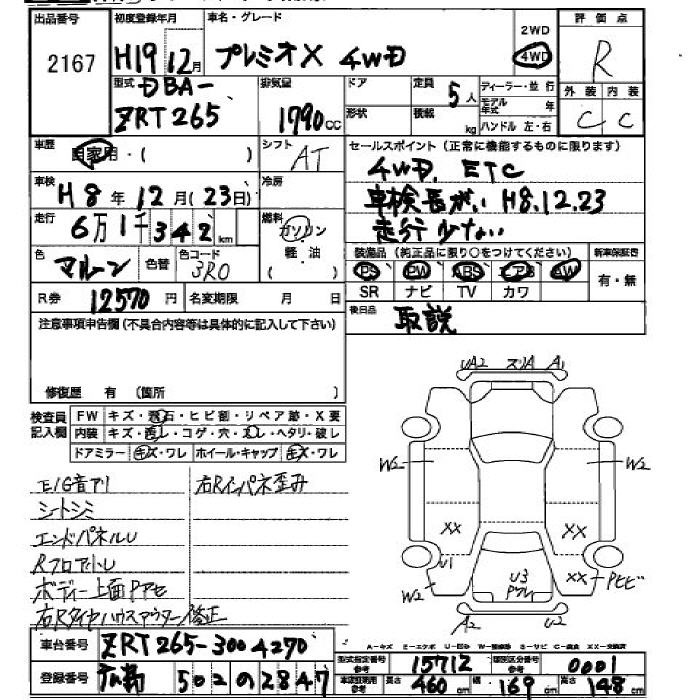 出品番号 初度登録年月 車名・グレード 2WD 評価点
2167 H19 12月 プレミオX 4WD 4WD R
型式 DBA- 排気量 ドア 定員 5人 ディーラー・並行 外装 内装
ZRT265 1790cc 形状 積載 kg モデル年式 年 C C
ハンドル 左・右
車歴 自家用・( ) シフト AT セールスポイント(正常に機能するものに限ります)
車検 H8年12月(23日) 冷房 4WD. ETC
走行 6万1千342km 燃料 ガソリン 軽・油 車検長がい H8.12.23
走行少ない
色 マルーン 色替 色コード 3R0 装備品(純正品に限り○をつけてください) 新車保証書
PS PW ABS エアB AW 有・無
R券 12570円 名変期限 月 日 SR ナビ TV カワ
注意事項申告欄(不具合内容等は具体的に記入して下さい) 後日品 取説
修復歴 有(箇所 )
UA2 スリA A1
検査員記入欄 FW キズ・飛石・ヒビ割・リペア跡・X要
内装 キズ・汚レ・コゲ・穴・スレ・ヘタリ・破レ
ドアミラー キズ・ワレ ホイール・キャップ キズ・ワレ
W2 W2
E/G音アリ 右Rインパネ歪み
シートシミ
エンドパネルU XX XX
RフロアハトU U1
ボディー上面Pアセ W2 U3 Pワレ XX PヒビA
右Rタイヤハウスアウター修正 A2 U2
A-キズ E-エクボ U-凹み W-補修跡 S-サビ C-腐食 XX-交換済
車台番号 ZRT265-3004270 型式指定番号 参考 15712 類別区分番号 参考 0001
登録番号 502 の 2847 車庫証明用 参考 長さ 460cm 幅 169cm 高さ 148cm